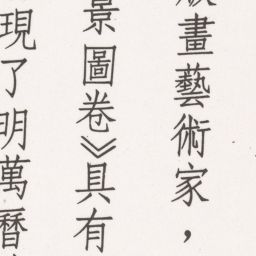 畫藝術家，
景圖卷》具有
現了明萬曆